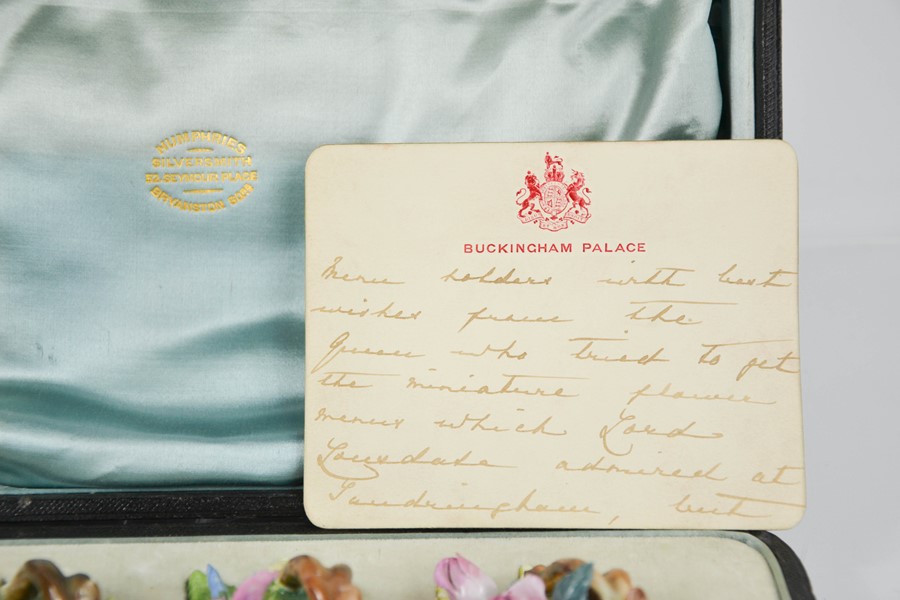 NUMPHRIES
SILVERSMITH
52 SEYMOUR PLACE
BRYANSTON SQRE
BUCKINGHAM PALACE
Menu holders with best
wishes from the
Queen who tried to get
the miniature flower
menus which Lord
Lonsdale admired at
Sandringham, but